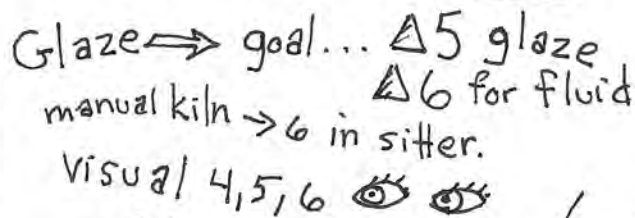 Glaze ⇒ goal... △5 glaze
△6 for fluid
manual kiln → 6 in sitter.
Visual 4,5,6